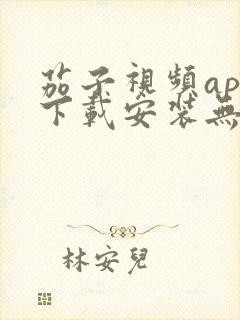 茄子視頻ap
下載安裝無
林安兒